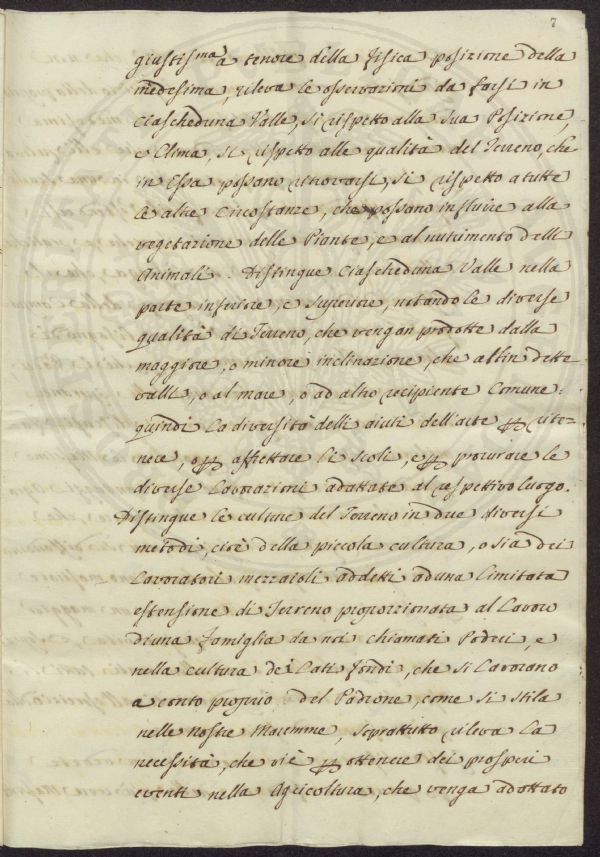 7
giustis.ma a tenore della fisica posizione della
medesima, rileva le osservazioni da farsi in
ciascheduna Valle, si rispetto alla sua Posizione,
e Clima, si rispetto alle qualità del Terreno, che
in Essa possano ritrovarsi, si rispetto a tutte
le altre circostanze, che possano influire alla
vegetazione delle Piante, e al nutrimento delli
Animali. Distingue ciascheduna Valle nella
parte inferiore, e superiore, notando le diverse
qualità di Terreno, che vengan prodotte dalla
maggiore, o minore inclinazione, che al fin dette
valli, o al mare, o ad altro recipiente Comune:
quindi la diversità delli aiuti dell'arte p rite=
nere, o p affrettare li scoli, e p procurare le
diverse lavorazioni adattate al respettivo luogo.
Distingue le culture del Terreno in due diversi
metodi, cioè della piccola cultura, o sia dei
Lavoratori mezzaioli addetti ad una limitata
estensione di Terreno proporzionata al Lavoro
di una famiglia da noi chiamati Poderi, e
nella cultura dei Lati fondi, che si Lavorano
a conto proprio del Padrone, come si stila
nelle nostre Maremme, soprattutto rileva la
necessità, che vi è p ottenere dei prosperi
eventi nella Agricoltura, che venga adottato